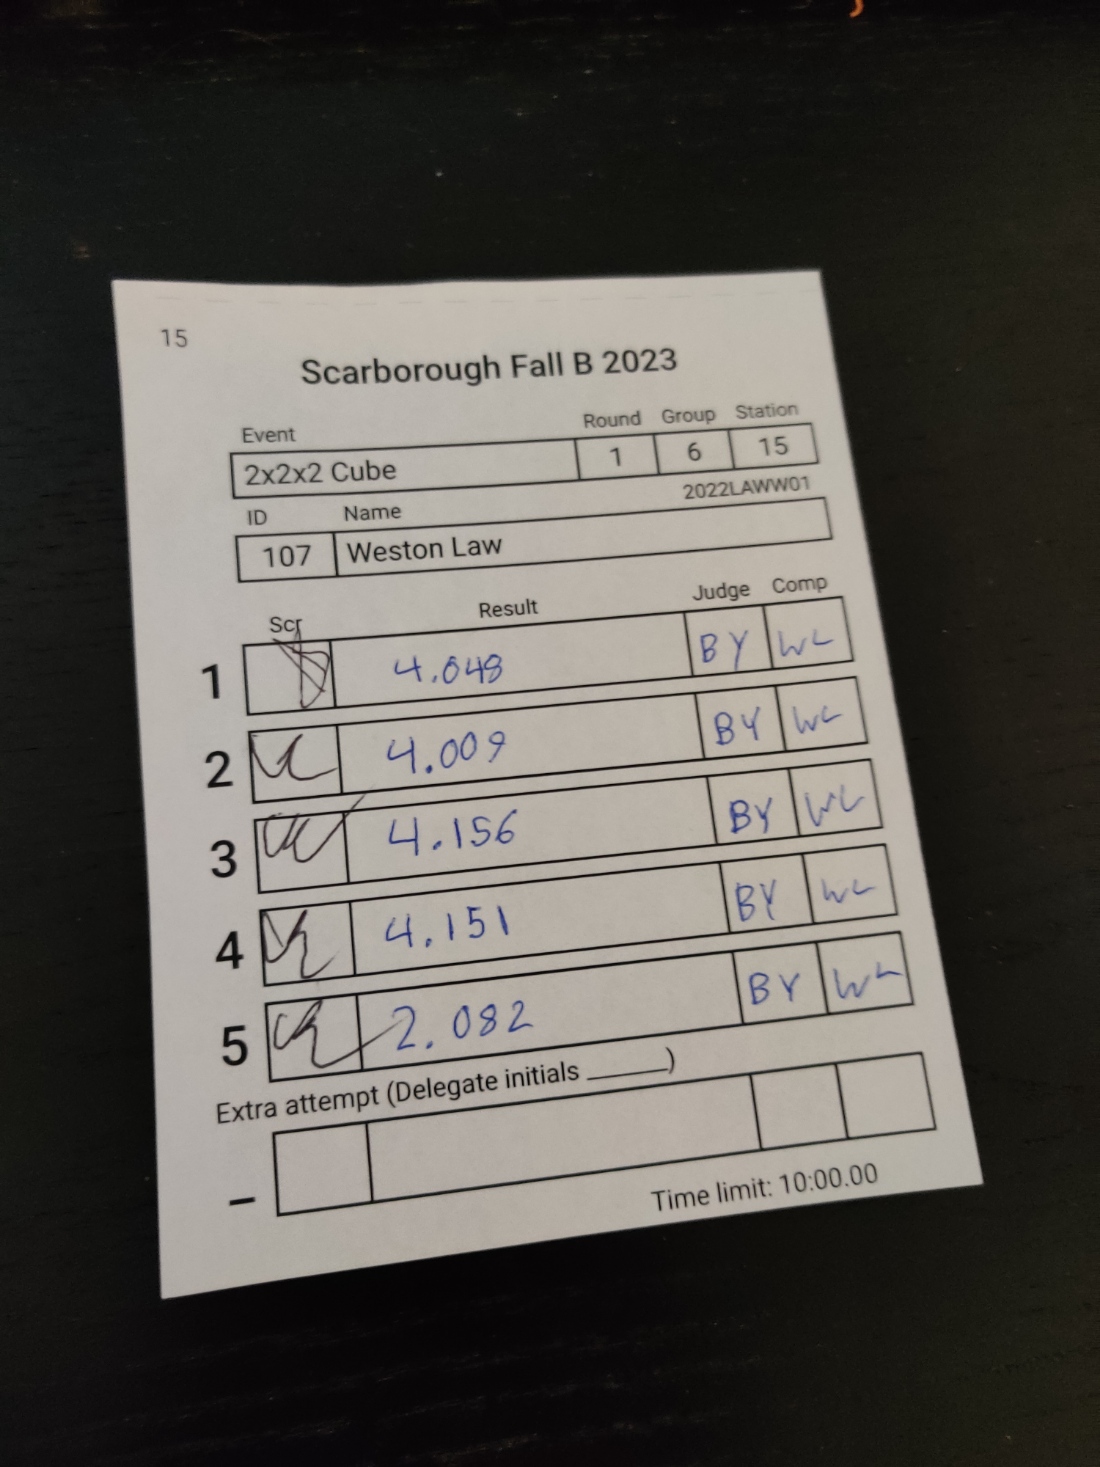 15
Scarborough Fall B 2023
Event Round Group Station
2x2x2 Cube 1 6 15
2022LAWW01
ID Name
107 Weston Law
Scr Result Judge Comp
1 4.048 BY WL
2 4.009 BY WL
3 4.156 BY WL
4 4.151 BY WL
5 2.082 BY WL
Extra attempt (Delegate initials _____)
–
Time limit: 10:00.00